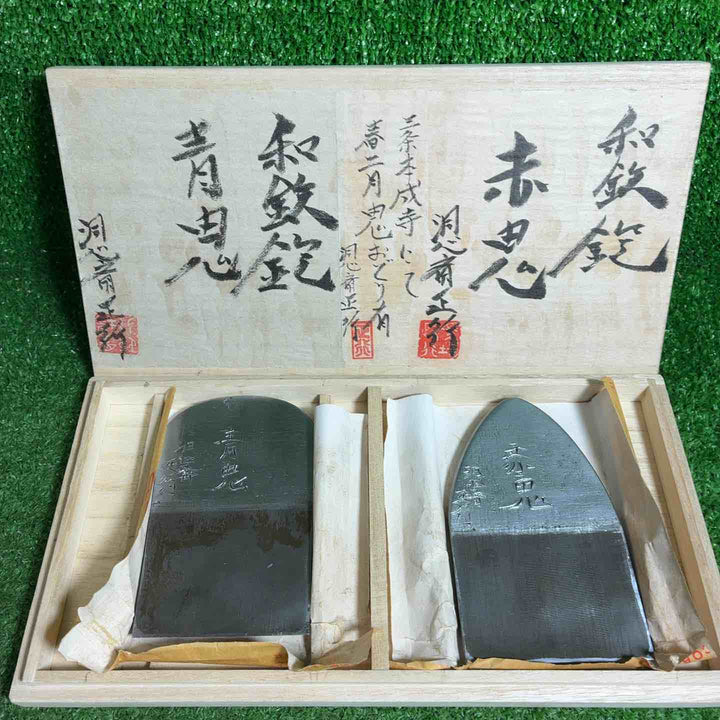 和鉄鉋
赤鬼
洞心斎正行
三条本成寺にて
春二月鬼おどり有
洞心斎正行
和鉄鉋
青鬼
洞心斎正行
青鬼
赤鬼